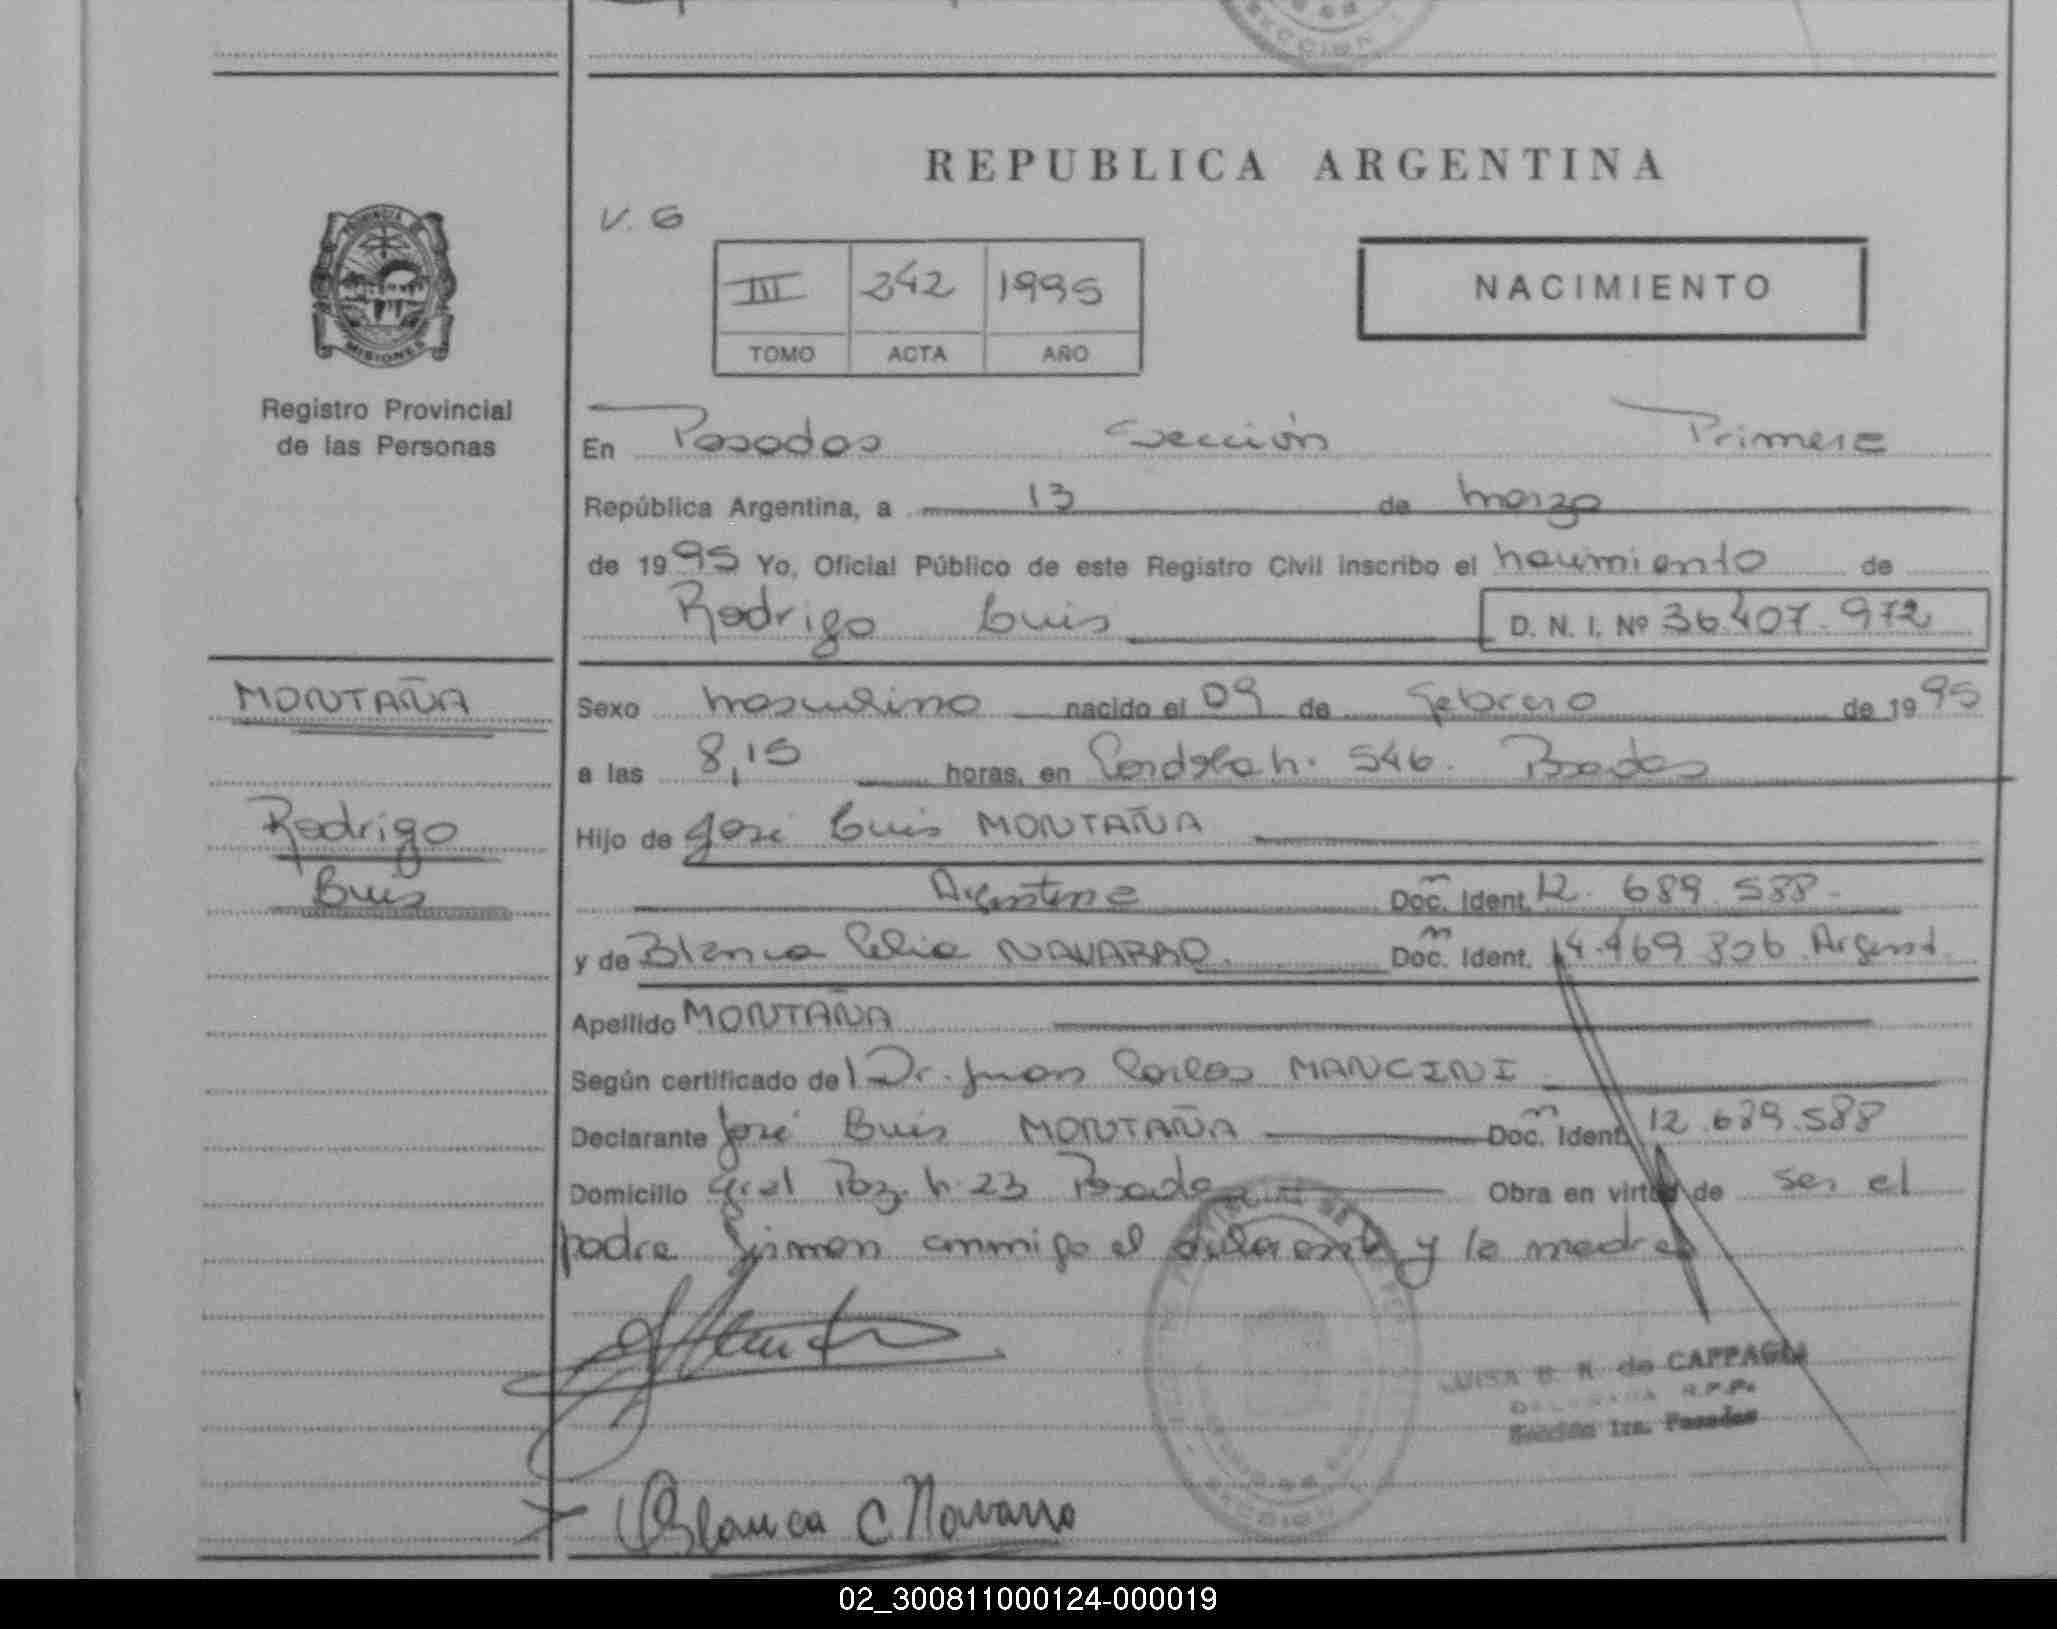 REPUBLICA ARGENTINA
V. 6
III 242 1995
TOMO ACTA AÑO
NACIMIENTO
PROVINCIA DE
MISIONES
Registro Provincial
de las Personas
En Posadas Sección Primera
República Argentina, a 13 de marzo
de 1995 Yo, Oficial Público de este Registro Civil inscribo el nacimiento de
Rodrigo Luis D. N. I. Nº 36.407.972
MONTAÑA
Rodrigo
Luis
Sexo masculino nacido el 09 de febrero de 1995
a las 8,15 horas, en 546. Posadas
Hijo de José Luis MONTAÑA
Argentina Doc. Ident. 12.689.588.
y de Blanca Celia NAVARRO. Doc. Ident. 14.469.306 Argent.
Apellido MONTAÑA
Según certificado del Dr. Juan Carlos MANCINI
Declarante José Luis MONTAÑA Doc. Ident. 12.689.588
Domicilio Gral Paz. h. 23 Posadas Obra en virtud de ser el
padre Firman conmigo el declarante y la madre
LUISA de CAPPAGLI
DELEGADA R.P.P.
Sección 1ra. Posadas
Blanca C Navarro
02_300811000124-000019